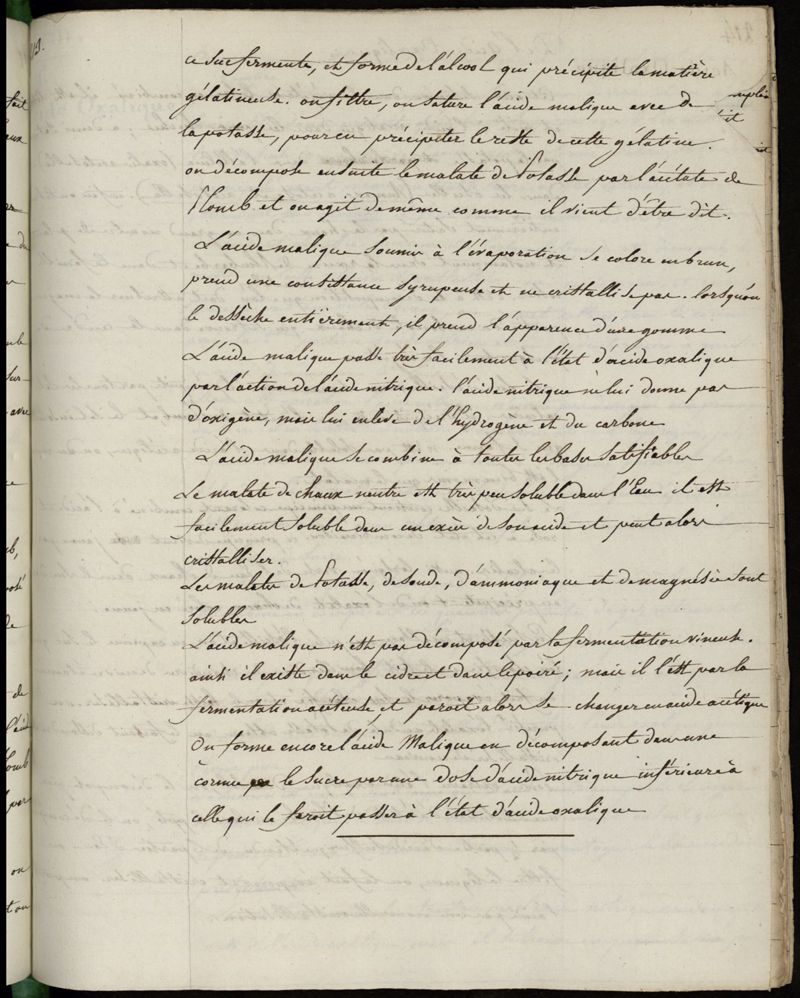 213.
ce suc fermente, et forme de l'álcool qui précipite la matière
gélatineuse. on filtre, on sature l'acide malique avec de
la potasse, pour en précipiter le reste de cette gélatine.
on décompose ensuite le malate de Potasse par l'acétate de
Plomb et on agit de même comme il vient d'être dit.
L'acide malique soumis à l'évaporation se colore en brun,
prend une consistance syrupeuse et ne cristallise pas. lorsqu'on
le dessèche entièrement, il prend l'apparence d'une gomme
L'acide malique passe très facilement à l'état d'acide oxalique
par l'action de l'acide nitrique. l'acide nitrique ne lui donne pas
d'oxigène, mais lui enleve de l'hydrogène et du carbone
L'acide malique se combine à toutes les bases salifiables
Le malate de chaux neutre est très peu soluble dans l'Eau il est
facilement soluble dans un excès de son acide et peut alors
cristalliser.
Les malates de Potasse, de soude, d'ammoniaque et de magnésie sont
solubles
L'acide malique n'est pas décomposé par la fermentation vineuse.
ainsi il existe dans le cidre et dans le poiré; mais il l'est par la
fermentation acéteuse, et paroit alors se changer en acide acétique
On forme encore l'acide Malique en décomposant dans une
cornue le sucre par une dose d'acide nitrique inférieure à
celle qui le feroit passer à l'état d'acide oxalique